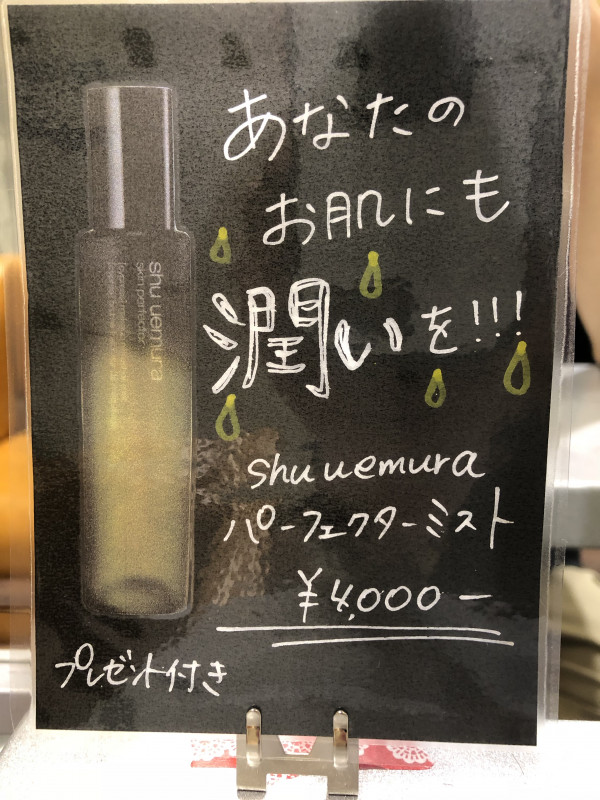 あなたの
お肌にも
潤いを!!!
shu uemura
パーフェクターミスト
¥4,000－
プレゼント付き
shu uemura
skin perfector